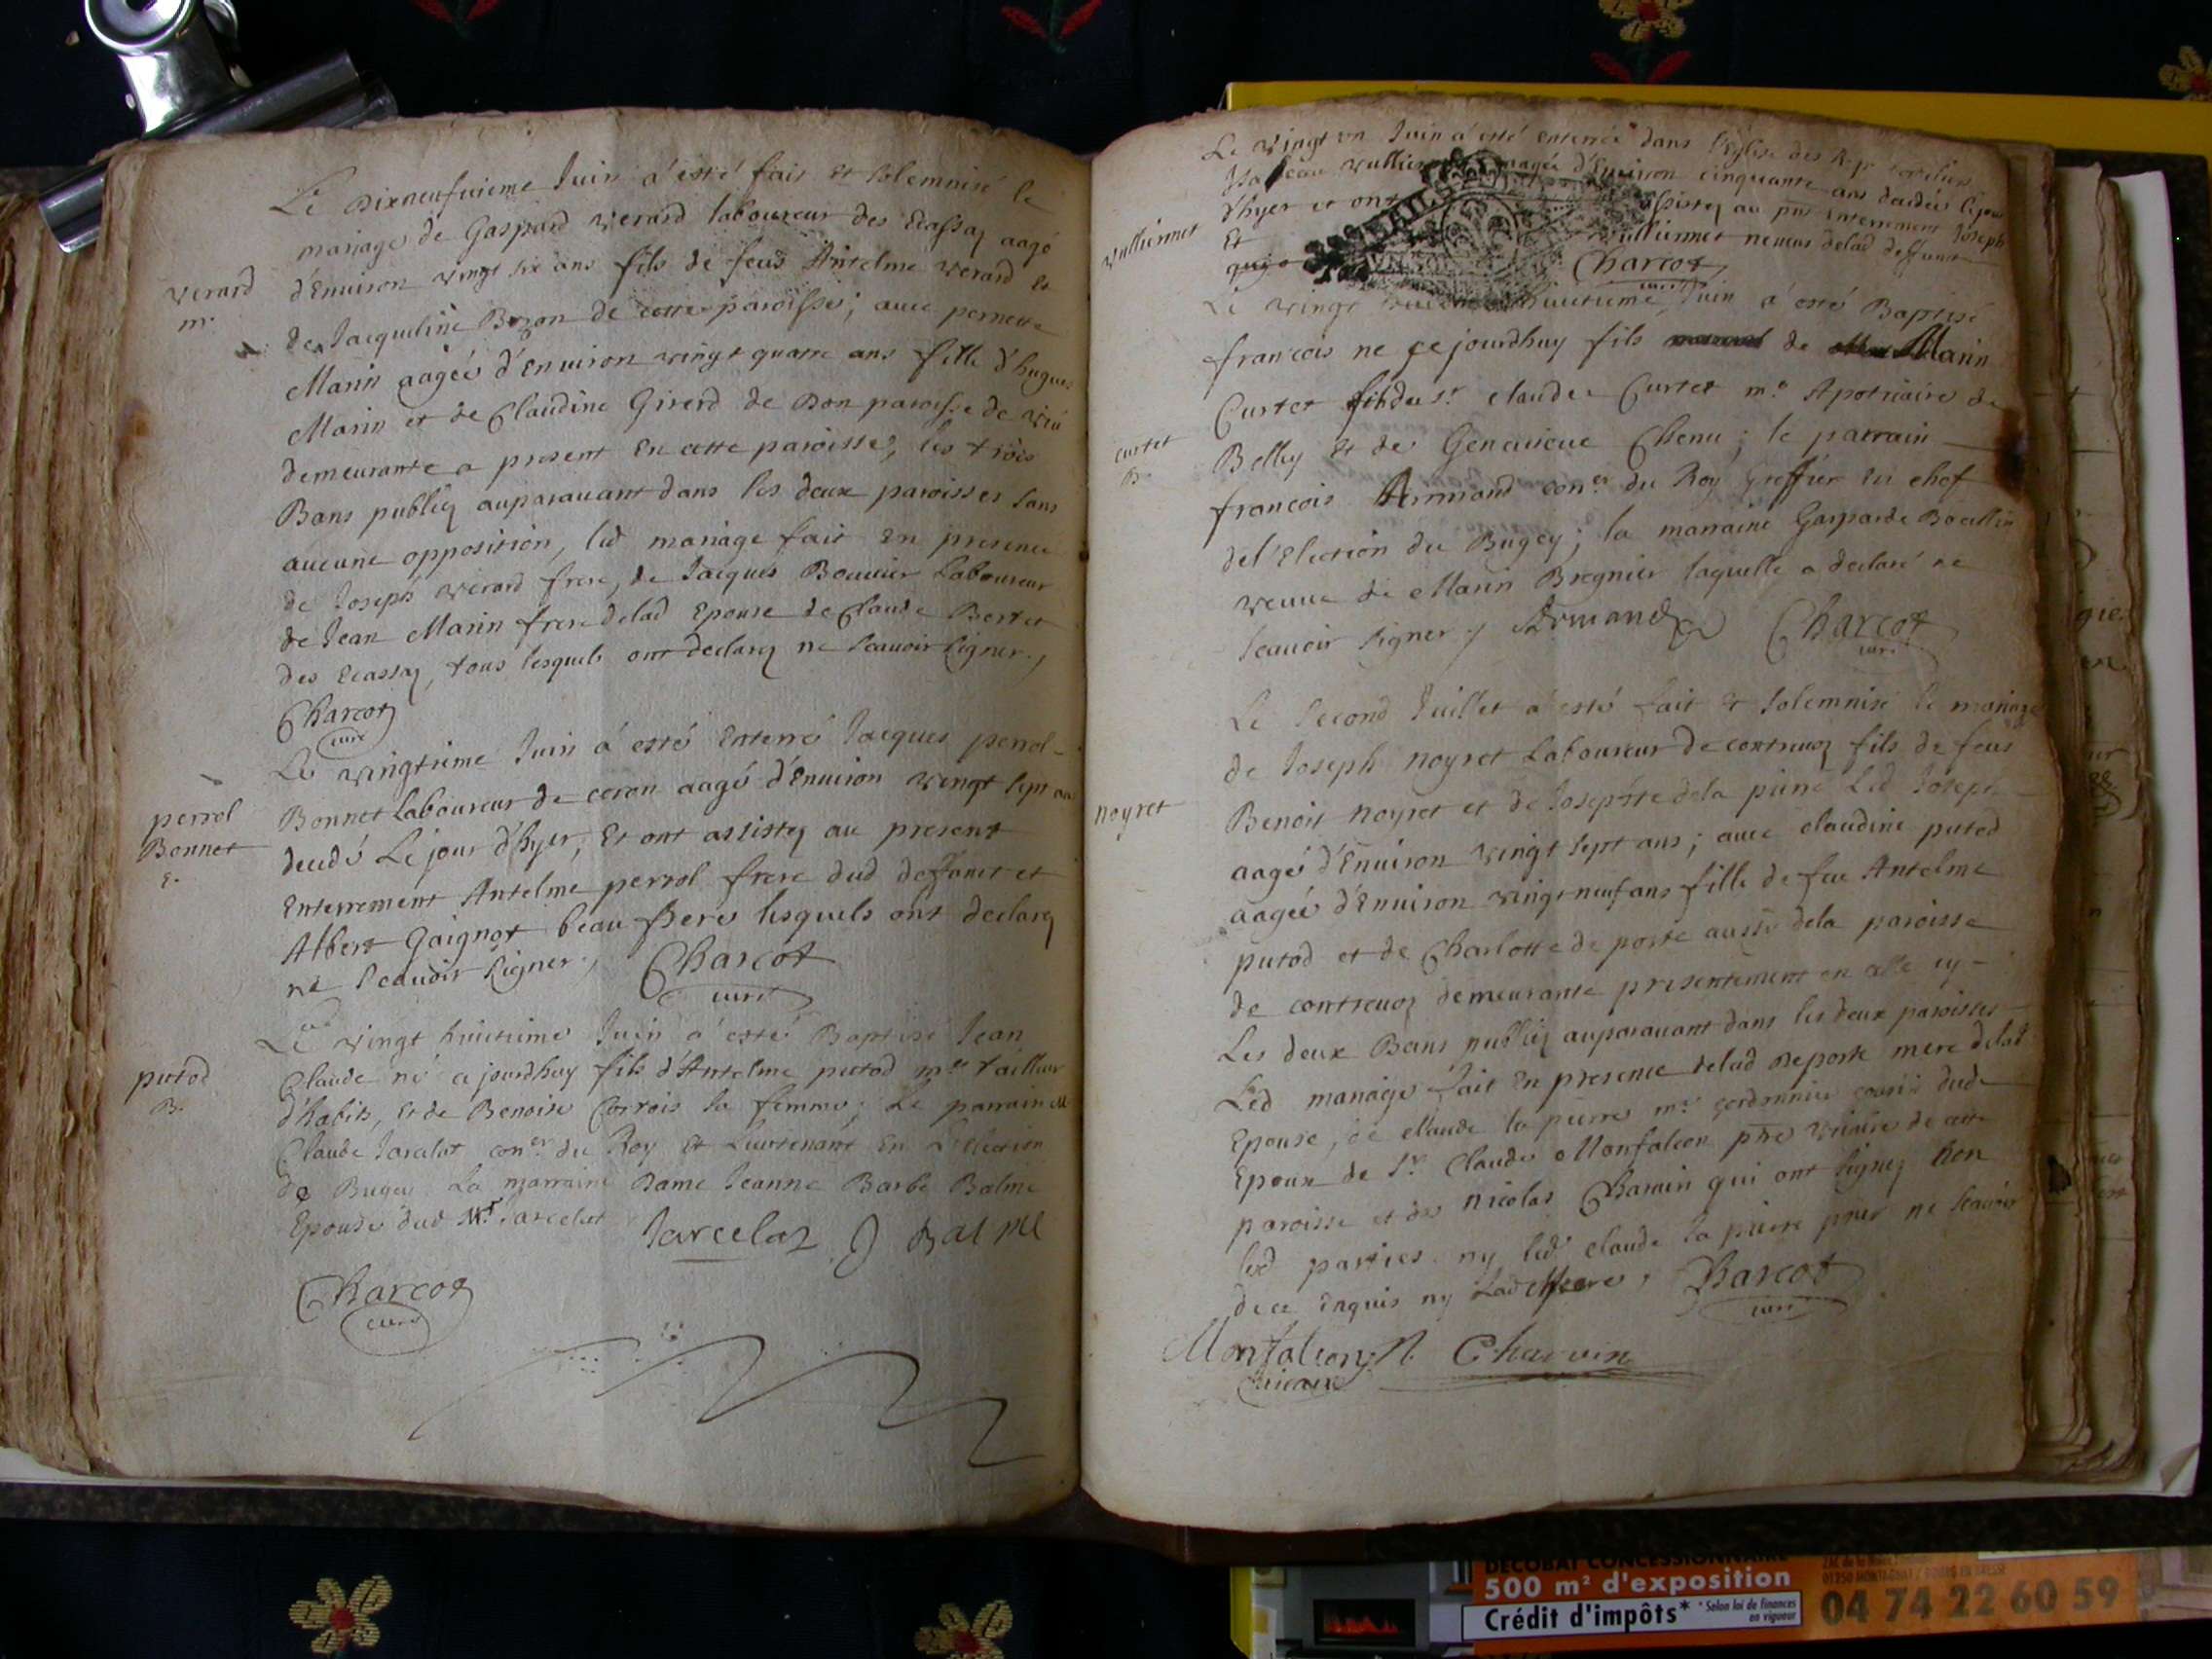 Le Dixneufuieme Juin a esté fait et solemnisé le
mariage de Gaspard Verard laboureur des Ecassaz aagé
verard
m.
d'Enuiron vingt six ans fils de feus Antelme Verard et
de Jacqueline Bozon de cette paroisse; auec pernette
Marin aagée d'Enuiron vingt quatre ans fille d'hugues
Marin et de Claudine Girerd de Don paroisse de Viu
demeurante a present En cette paroisse, les trois
Bans publiez auparauant dans les deux paroisses sans
aucune opposition, led mariage fait En presence
de Joseph Verard frere, de Jacques Bouuier Laboureur
de Jean Marin frere delad Epouse de Claude Bertet
des Ecassaz, tous lesquels ont declarez ne scauoir signer.
Charcot
curé
Le vingtieme Juin a esté Enterré Jacques perrol-
perrol
Bonnet
E.
Bonnet Laboureur de ceron aagé d'Enuiron vingt sept ans
decedé Le jour d'hyer, Et ont assistez au present
Enterrement Antelme perrol frere dud deffunct et
Albert Gaignot beau frere lesquels ont declarez
ne scauoir signer.
Charcot
curé
Le vingt huitieme Juin a esté Baptisé Jean
putod
B.
Claude né ce jourdhuy fils d'Antelme putod me Tailleur
d'habits, et de Benoise Cortois sa femme; Le parrain
Claude Jarcelat coner du Roy Et Lieutenant En L'election
de Bugey La marraine Dame Jeanne Barbe Balme
Epouse dud Mr Jarcelat
Jarcelat J Balme
Charcot
curé
Le vingt un Juin a esté enterrée dans l'Eglise des
Isabeau Vullier aagée d'Enuiron cinquante ans decedée le jour
vulliermet
d'hyer et ont assistez au pnt enterrement Joseph
Et Vulliermet neueu delad deffunte
Charcot
curé
Le vingt huitieme Juin a esté Baptisé
francois ne ce jourdhuy fils de Marin
Curtet fils du Sr Claude Curtet me Apoticaire de
curtet
B.
Belley Et de Geneuieue Chenu; le parrain
francois Armand coner du Roy Greffier En chef
de l'Election du Bugey; la marraine Gasparde
veuue de Marin Bregnier laquelle a declaré ne
scauoir signer
Armand
Charcot
curé
Le second Juillet a esté fait et solemnisé le mariage
de Joseph noyret Laboureur de contreuoz fils de feus
noyret
Benoit noyret et de Josephte dela pierre Led Joseph
aagé d'Enuiron vingt sept ans; auec claudine putod
aagée d'Enuiron vingt neuf ans fille de feu Antelme
putod et de Charlotte de porte aussy dela paroisse
de contreuoz demeurante presentement en
Les deux Bans publiez auparauant dans les deux paroisses
Led mariage fait En presence delad Deporte mere delad
Epouse, de claude la pierre me cordonnier cousin dud
Epoux de Sr Claude Monfalcon ptre vicaire de cette
paroisse et de Nicolas Charuin qui ont signez non
led parties ny led claude la pierre pour ne scauoir
dece enquis ny Lad mere,
Charcot
curé
Monfalcon
vicaire
N. Charuin
DECOBAT CONCESSIONNAIRE
500 m² d'exposition
Crédit d'impôts*
*Selon loi de finances
en vigueur
04 74 22 60 59